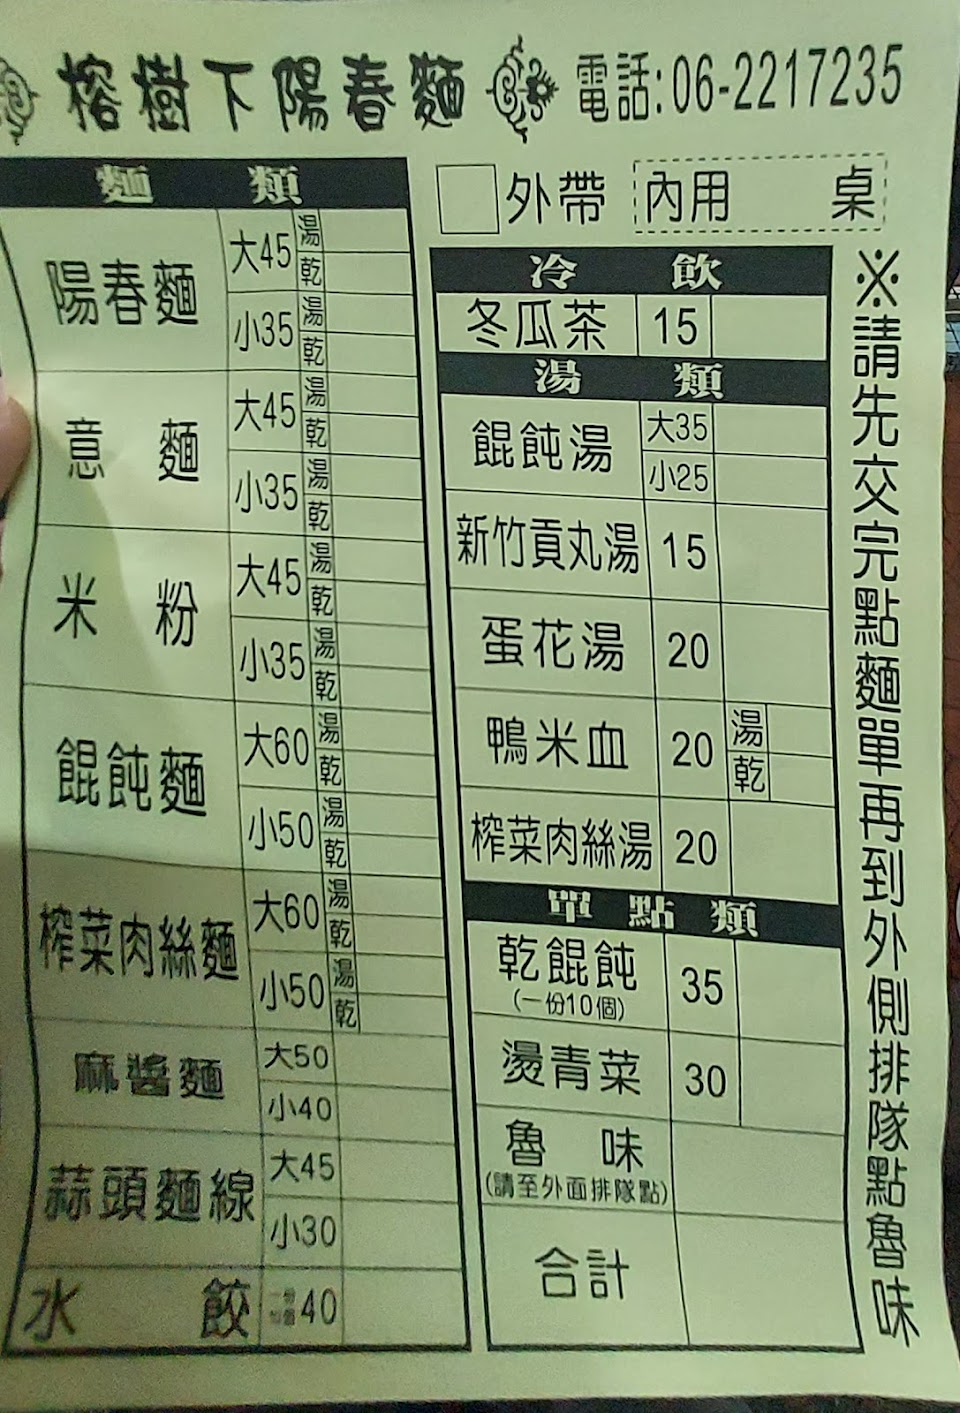 榕樹下陽春麵 電話:06-2217235
外帶 內用 桌
麵類
陽春麵 大45 湯
乾
小35 湯
乾
意麵 大45 湯
乾
小35 湯
乾
米粉 大45 湯
乾
小35 湯
乾
餛飩麵 大60 湯
乾
小50 湯
乾
榨菜肉絲麵 大60 湯
乾
小50 湯
乾
麻醬麵 大50
小40
蒜頭麵線 大45
小30
水餃 40
冷飲
冬瓜茶 15
湯類
餛飩湯 大35
小25
新竹貢丸湯 15
蛋花湯 20
鴨米血 20 湯
乾
榨菜肉絲湯 20
單點類
乾餛飩 35
(一份10個)
燙青菜 30
魯味
(請至外面排隊點)
合計
※請先交完點麵單再到外側排隊點魯味